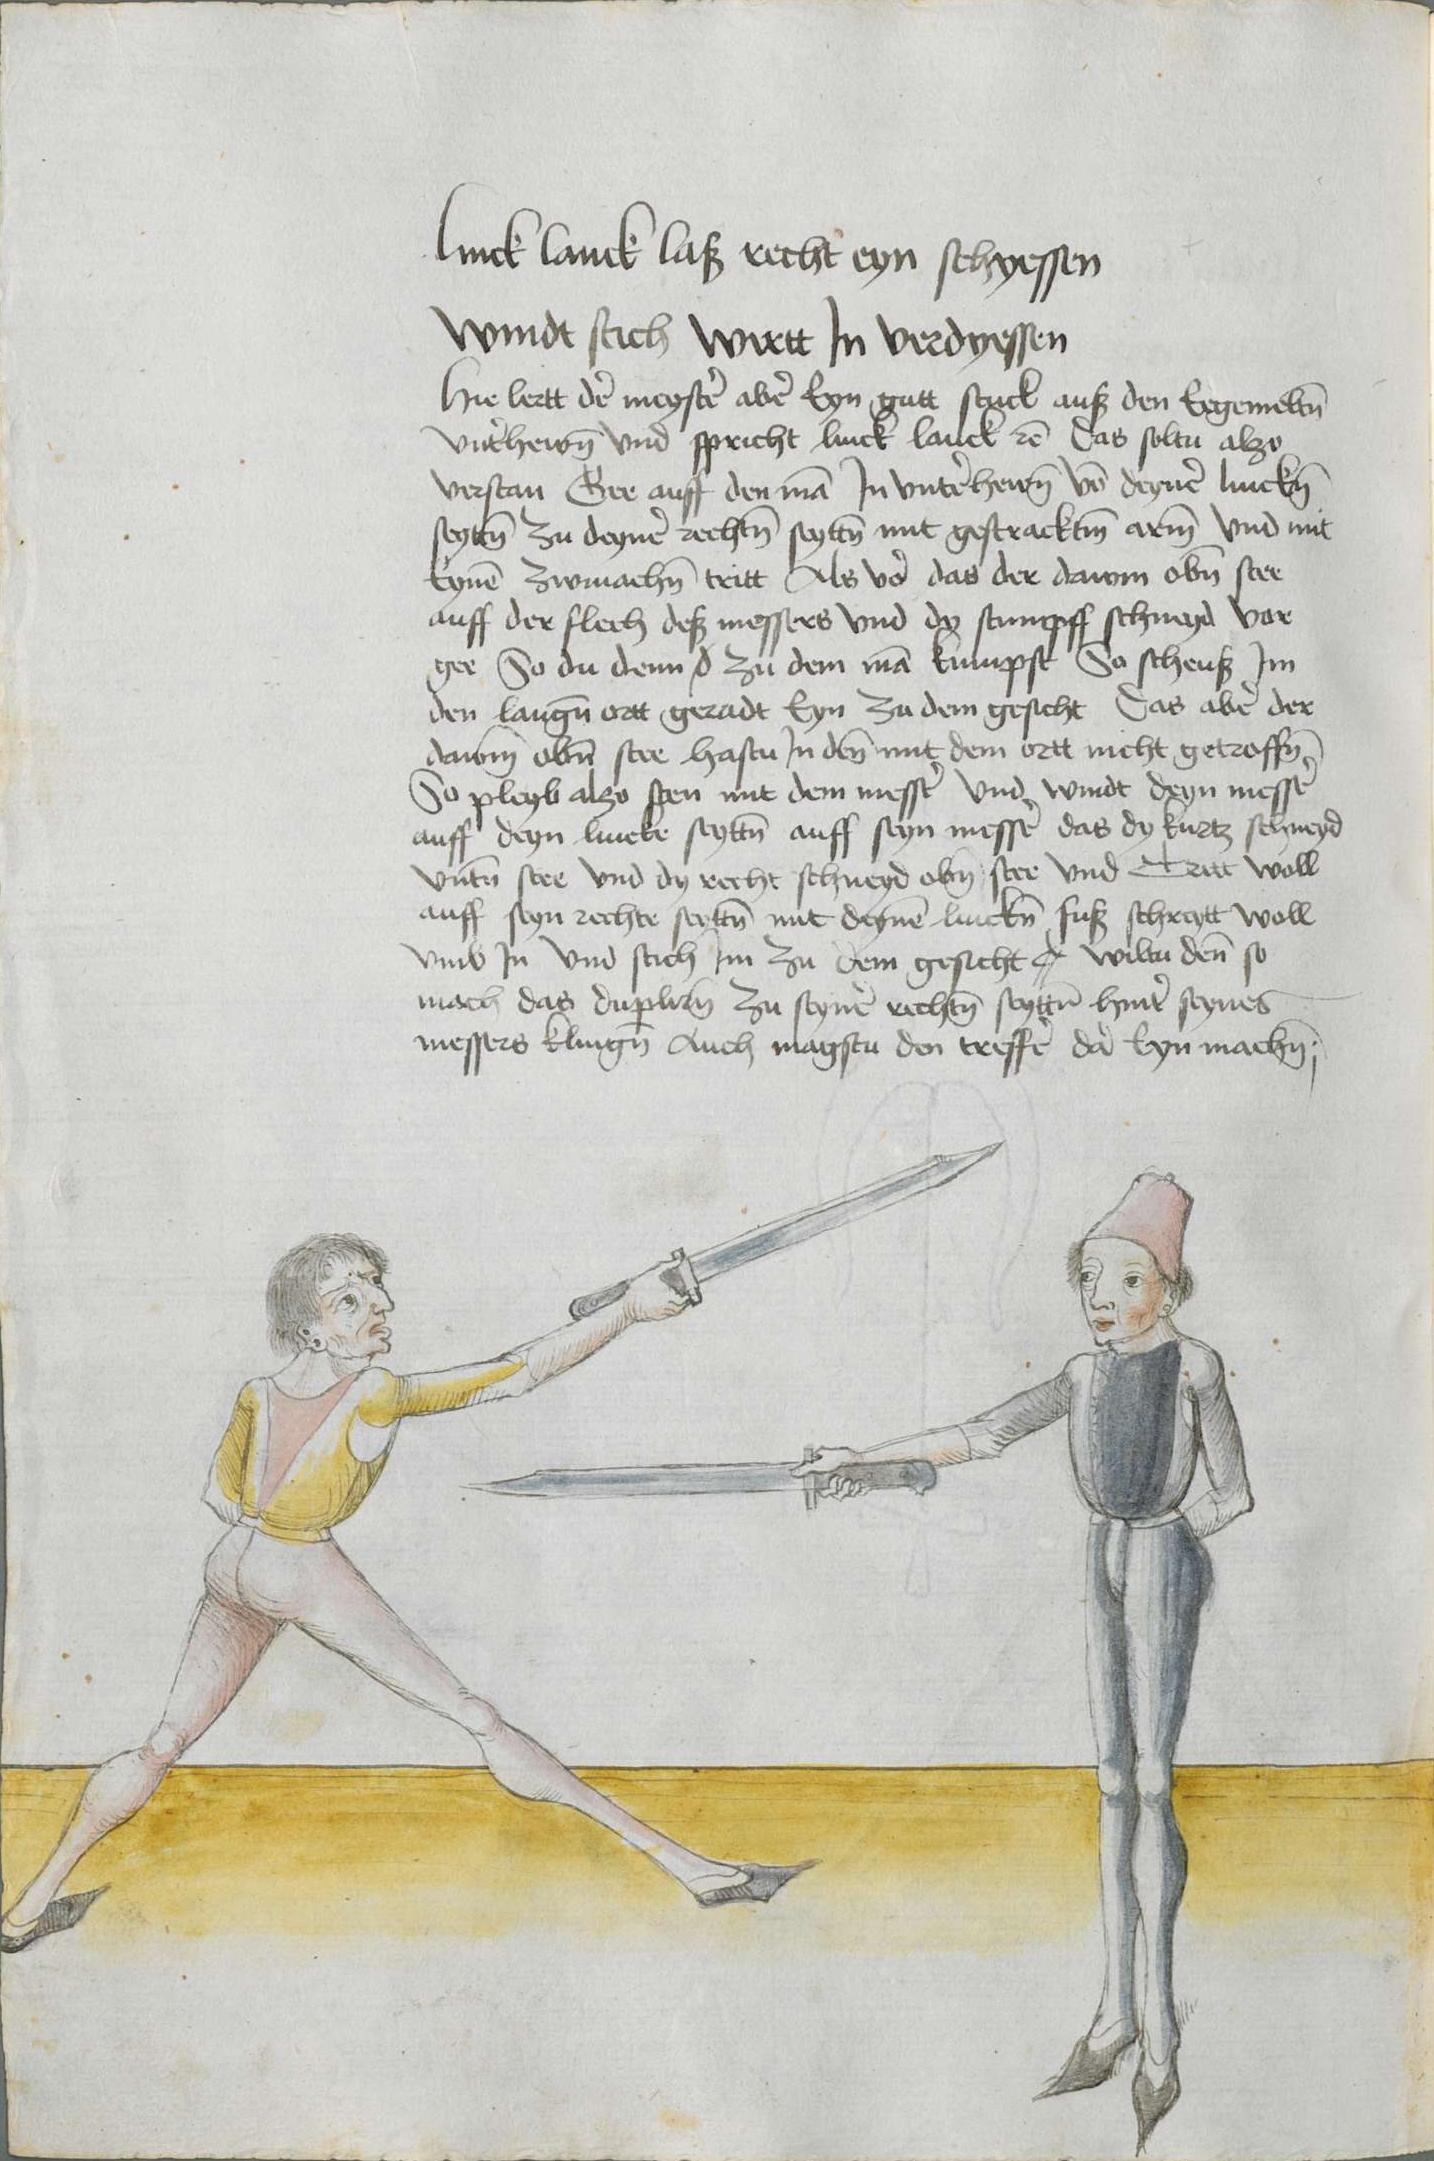 linck lanck laß recht eyn schyessen
windt stich wirtt In verdryessen
Hie lertt der meyster aber Eyn gutt stuck auß den Eegemeltn̄
vnterhewn̄ vnd spricht linck lanck rē Das soltu alzo
verstan Gee auff den mā In vnterhewn̄ vō deyner linckn̄
seyttn̄ zu deyner rechtn̄ seyttn̄ mit gestracktm̄ arm̄ vnd mit
Eynē zwuachn̄ tritt Als vor das der dawm obn̄ stee
auff der flech deß messers vnd dy stumpff schneyd vor
gee So du denn zu dem mā kumpst So scheuß Im
den langn̄ ortt geradt Eyn zu dem gesicht Das aber der
dawm̄ obn̄ stee hastu In den̄ mit dem ortt nicht getroffn̄
So pleyb alzo sten mit dem messer vnd windt deyn messer
auff deyn lincke seyttn̄ auff seyn messer das dy kurtz schneyd
vntn̄ stee vnd dy recht schneyd obn̄ stee vnd Tritt woll
auff seyn rechte seyttn̄ mit deynē linckn̄ fuß schreytt woll
vmb In vnd stich Im zu dem gesicht wiltu den̄ so
mach das duplirn̄ zu seyner rechtn̄ seyttn̄ hinter seynes
messers klingn̄ Auch magstu den treffer dar Eyn machn̄